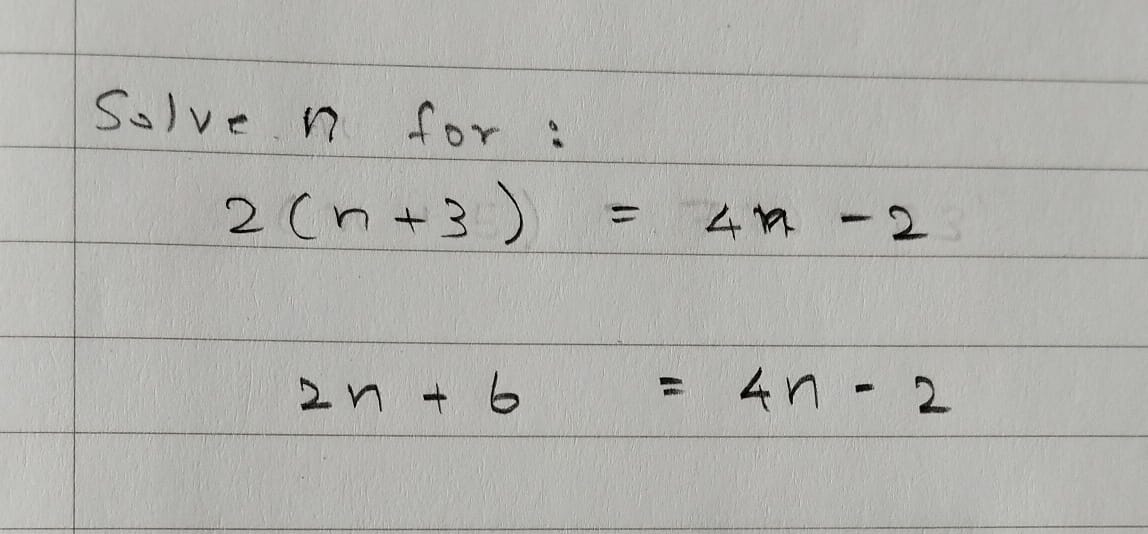 Solve n for :
2(n+3) = 4n - 2
2n + 6 = 4n - 2